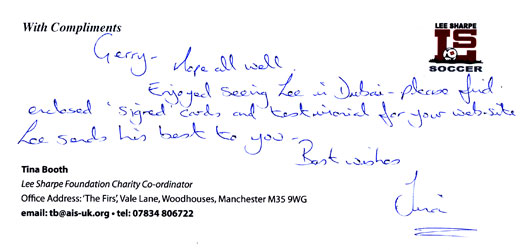 With Compliments
LEE SHARPE
LS
SOCCER
Gerry - Hope all well.
Enjoyed seeing Lee in Dubai - please find
enclosed 'signed' cards and testimonial for your web-site
Lee sends his best to you -
Best wishes
Tina
Tina Booth
Lee Sharpe Foundation Charity Co-ordinator
Office Address: 'The Firs', Vale Lane, Woodhouses, Manchester M35 9WG
email: tb@ais-uk.org • tel: 07834 806722